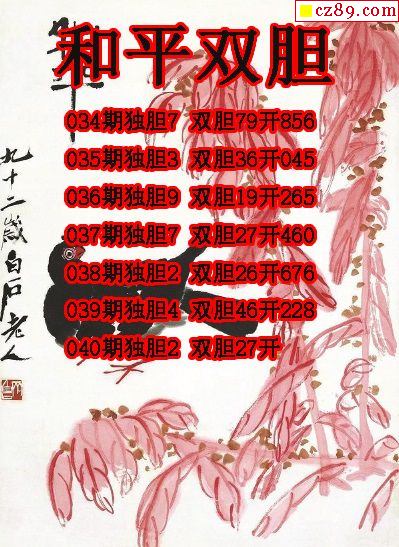 cz89.com
和平双胆
034期独胆7 双胆79开856
035期独胆3 双胆36开045
036期独胆9 双胆19开265
037期独胆7 双胆27开460
038期独胆2 双胆26开676
039期独胆4 双胆46开228
040期独胆2 双胆27开
九十二岁白石老人